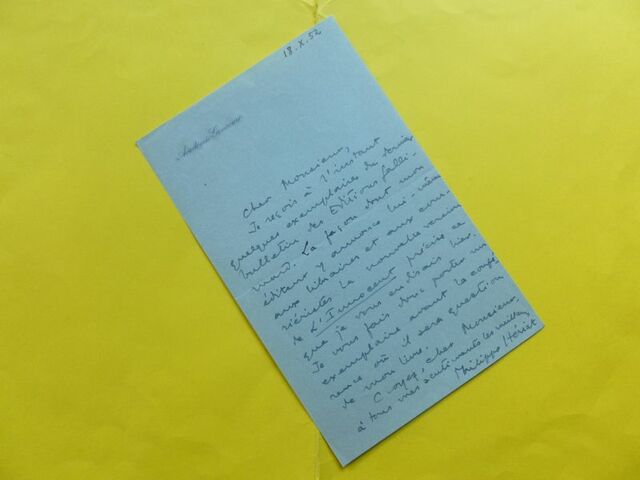 18.X.52
Cher Monsieur,
Je reçois à l'instant
quelques exemplaires du dernier
bulletin des Editions Galli-
mard. La façon dont mon
éditeur y annonce lui même
aux libraires et aux cour-
riéristes la nouvelle version
de L'Innocent précise ce
que je vous en disais hier.
Je vous fais donc porter un
exemplaire avant la confé-
rence où il sera question
de mon livre.
Croyez, cher Monsieur,
à tous mes sentiments les meilleurs,
Philippe Hériat